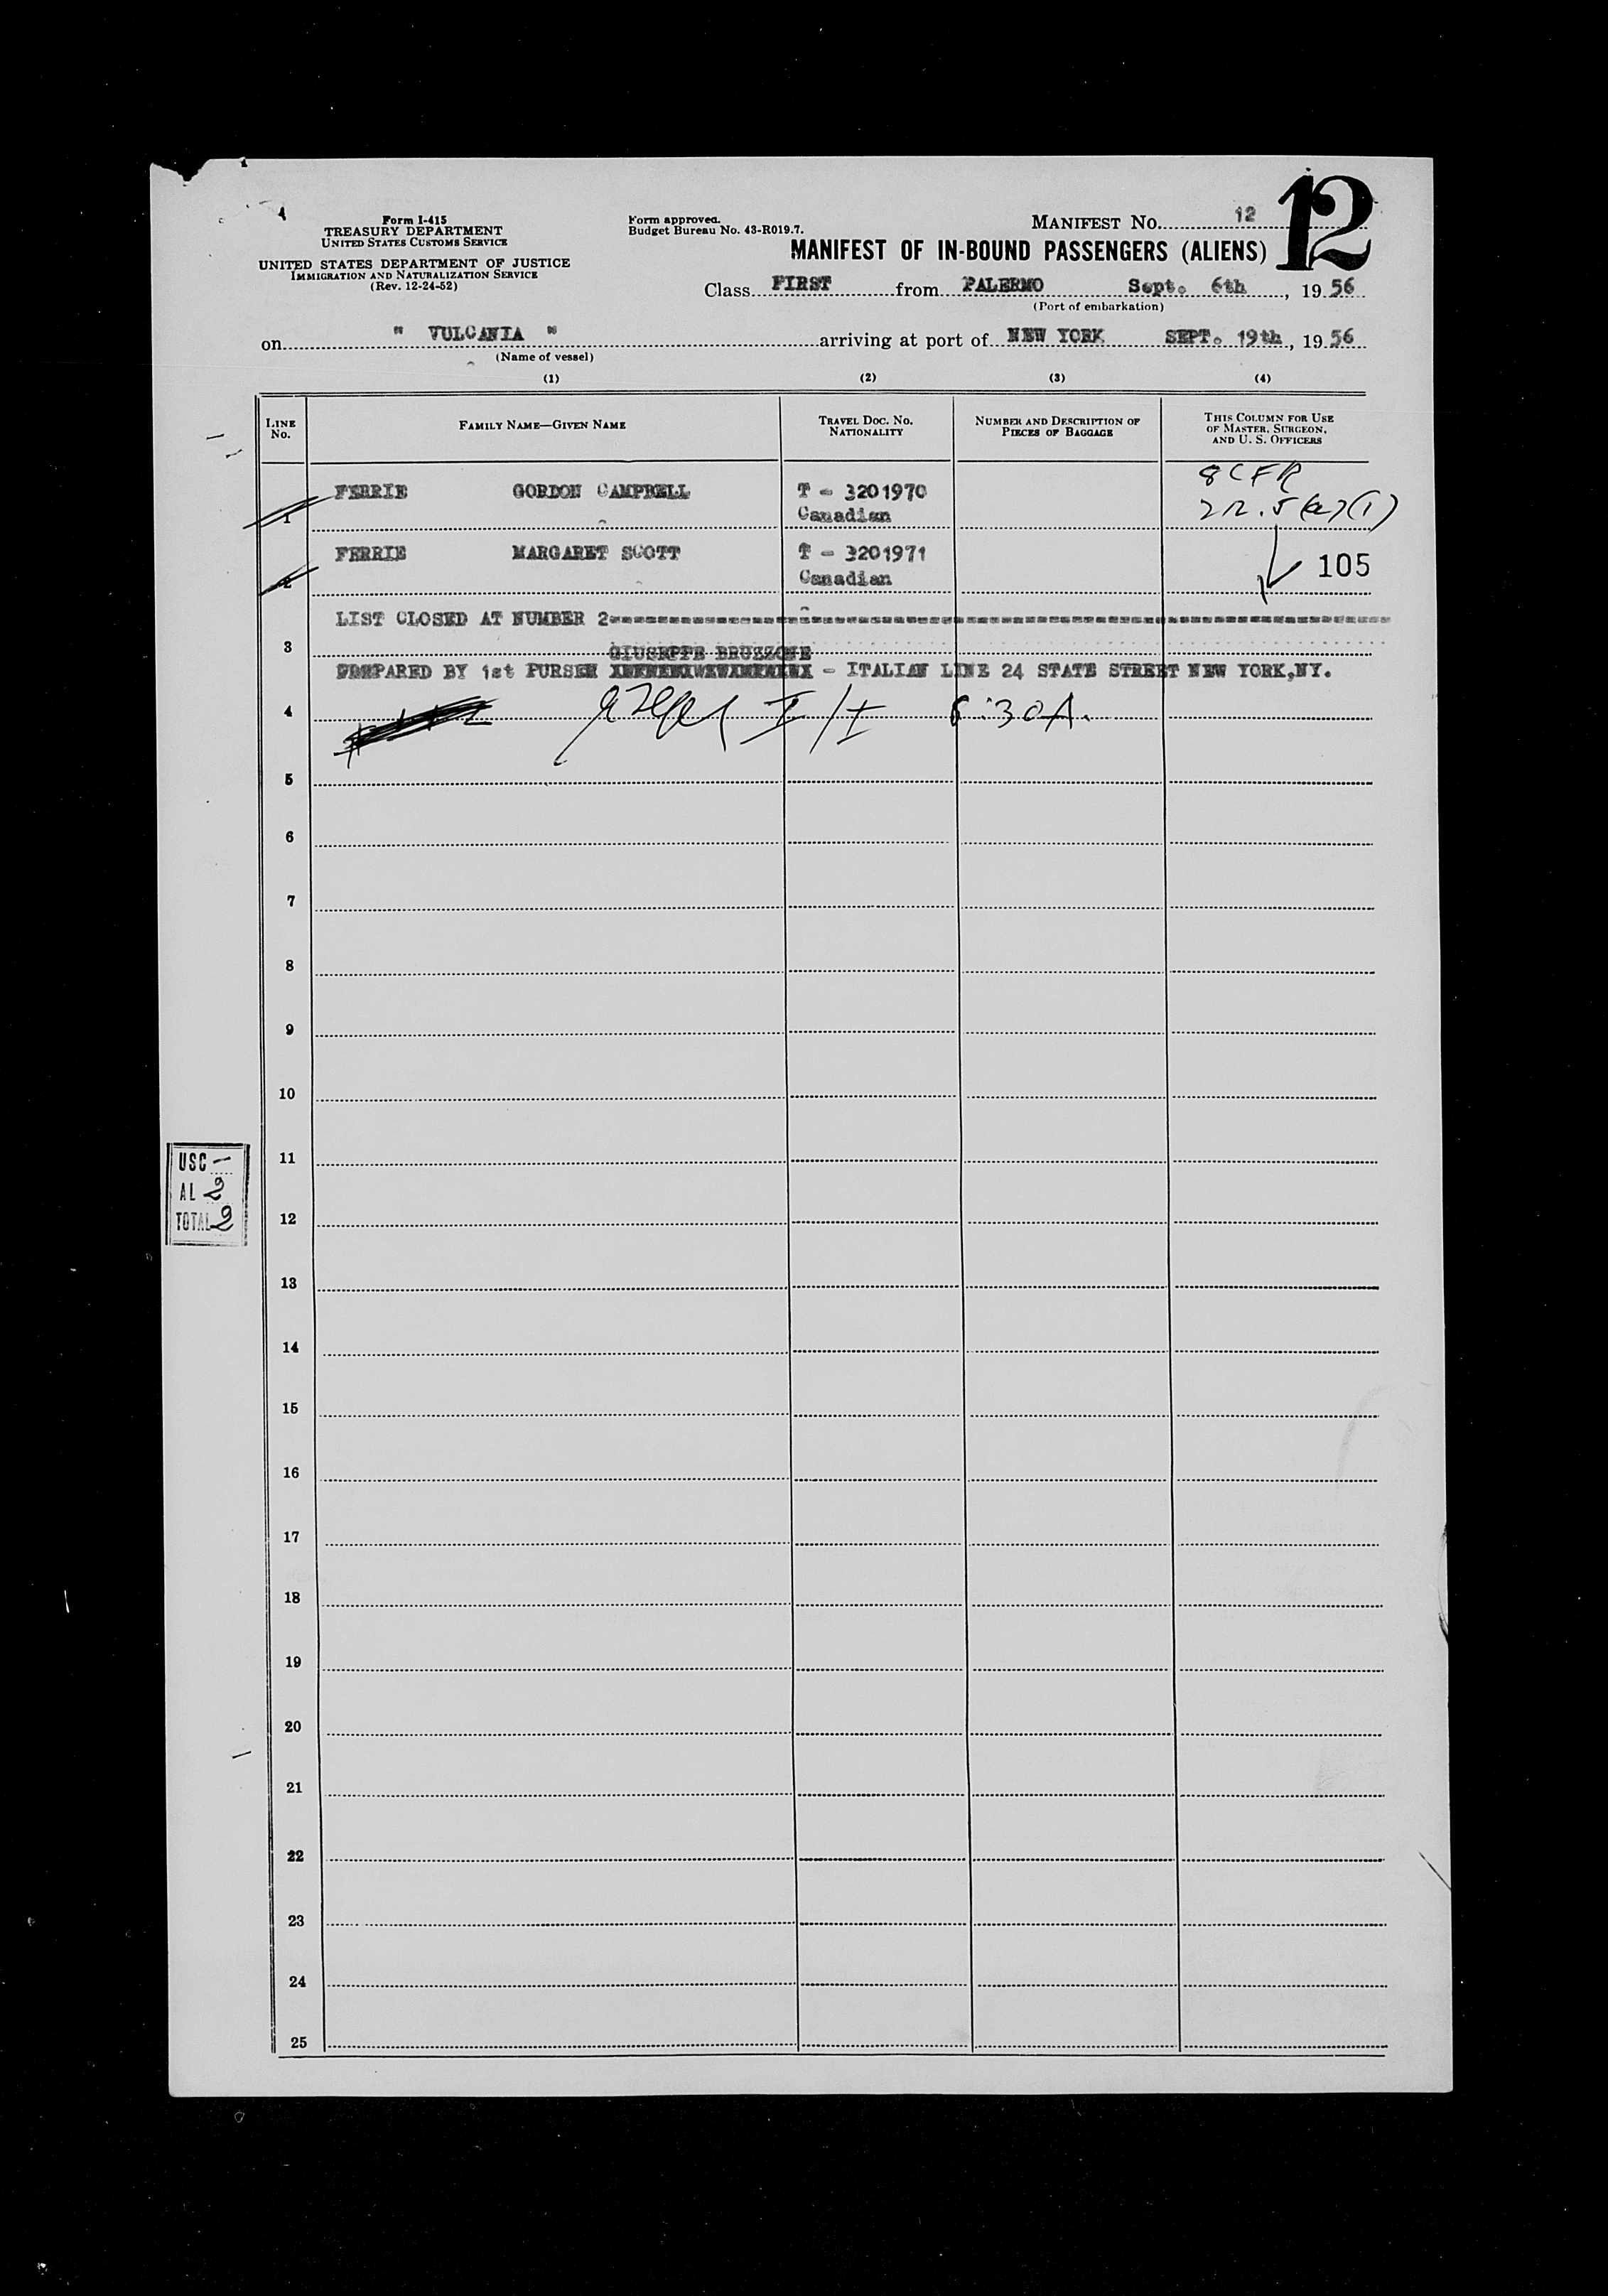 12
Form I-415
TREASURY DEPARTMENT
UNITED STATES CUSTOMS SERVICE
UNITED STATES DEPARTMENT OF JUSTICE
IMMIGRATION AND NATURALIZATION SERVICE
(Rev. 12-24-52)
Form approved.
Budget Bureau No. 43-R019.7.
MANIFEST No. 12
MANIFEST OF IN-BOUND PASSENGERS (ALIENS)
Class FIRST from PALERMO Sept. 6th, 19 56
(Port of embarkation)
on " VULCANIA " arriving at port of NEW YORK SEPT. 19th, 19 56
(Name of vessel)
(1) (2) (3) (4)
LINE No. FAMILY NAME—GIVEN NAME TRAVEL DOC. No. NATIONALITY NUMBER AND DESCRIPTION OF PIECES OF BAGGAGE THIS COLUMN FOR USE OF MASTER, SURGEON, AND U. S. OFFICERS
8 CFR
1 FERRIE GORDON CAMPBELL T - 3201970
Canadian
2 FERRIE MARGARET SCOTT T - 3201971 105
Canadian
LIST CLOSED AT NUMBER 2
3 GIUSEPPE BRUZZONE
PREPARED BY 1st PURSER - ITALIAN LINE 24 STATE STREET NEW YORK,NY.
4 8:30A.
5
6
7
8
9
10
11
12
13
14
15
16
17
18
19
20
21
22
23
24
25
USC –
AL 2
TOTAL 2